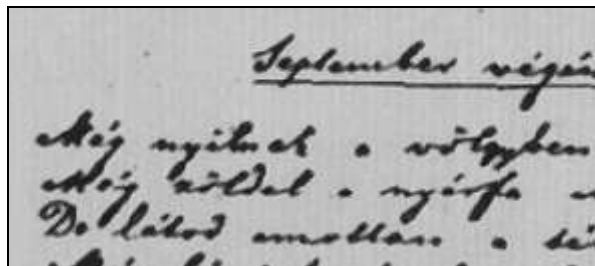 September végén
Még nyilnak a völgyben
Még zöldel a nyárfa
De látod amottan a